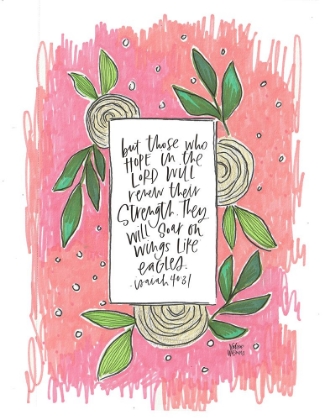 but those who
HOPE in the
LORD WILL
renew their
Strength. They
will Soar on
wings Like
eagles.
isaiah 40:31